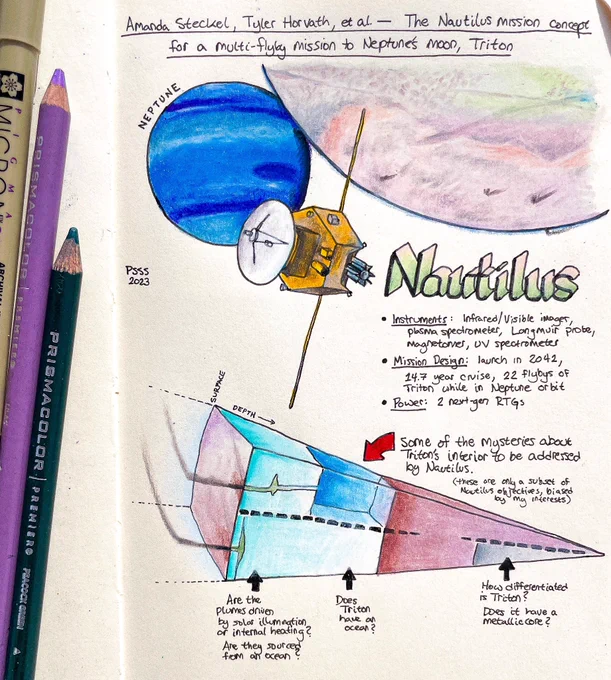 Amanda Steckel, Tyler Horvath, et al — The Nautilus mission concept
for a multi-flyby mission to Neptune's moon, Triton
NEPTUNE
PSSS
2023
Nautilus
• Instruments: Infrared/Visible imager,
plasma spectrometer, Langmuir probe,
magnetometer, UV spectrometer
• Mission Design: launch in 2042,
14.7 year cruise, 22 flybys of
Triton while in Neptune orbit
• Power: 2 next-gen RTGs
SURFACE
DEPTH →
Some of the mysteries about
Triton's interior to be addressed
by Nautilus.
(these are only a subset of
Nautilus objectives, biased
by my interests)
Are the
plumes driven
by solar illumination
or internal heating?
Are they sourced
from an ocean?
Does
Triton
have an
ocean?
How differentiated
is Triton?
Does it have a
metallic core?
PIGMA
MICRON
ARCHIVAL
PRISMACOLOR | PREMIER
PRISMACOLOR | PREMIER PEACOCK GREEN